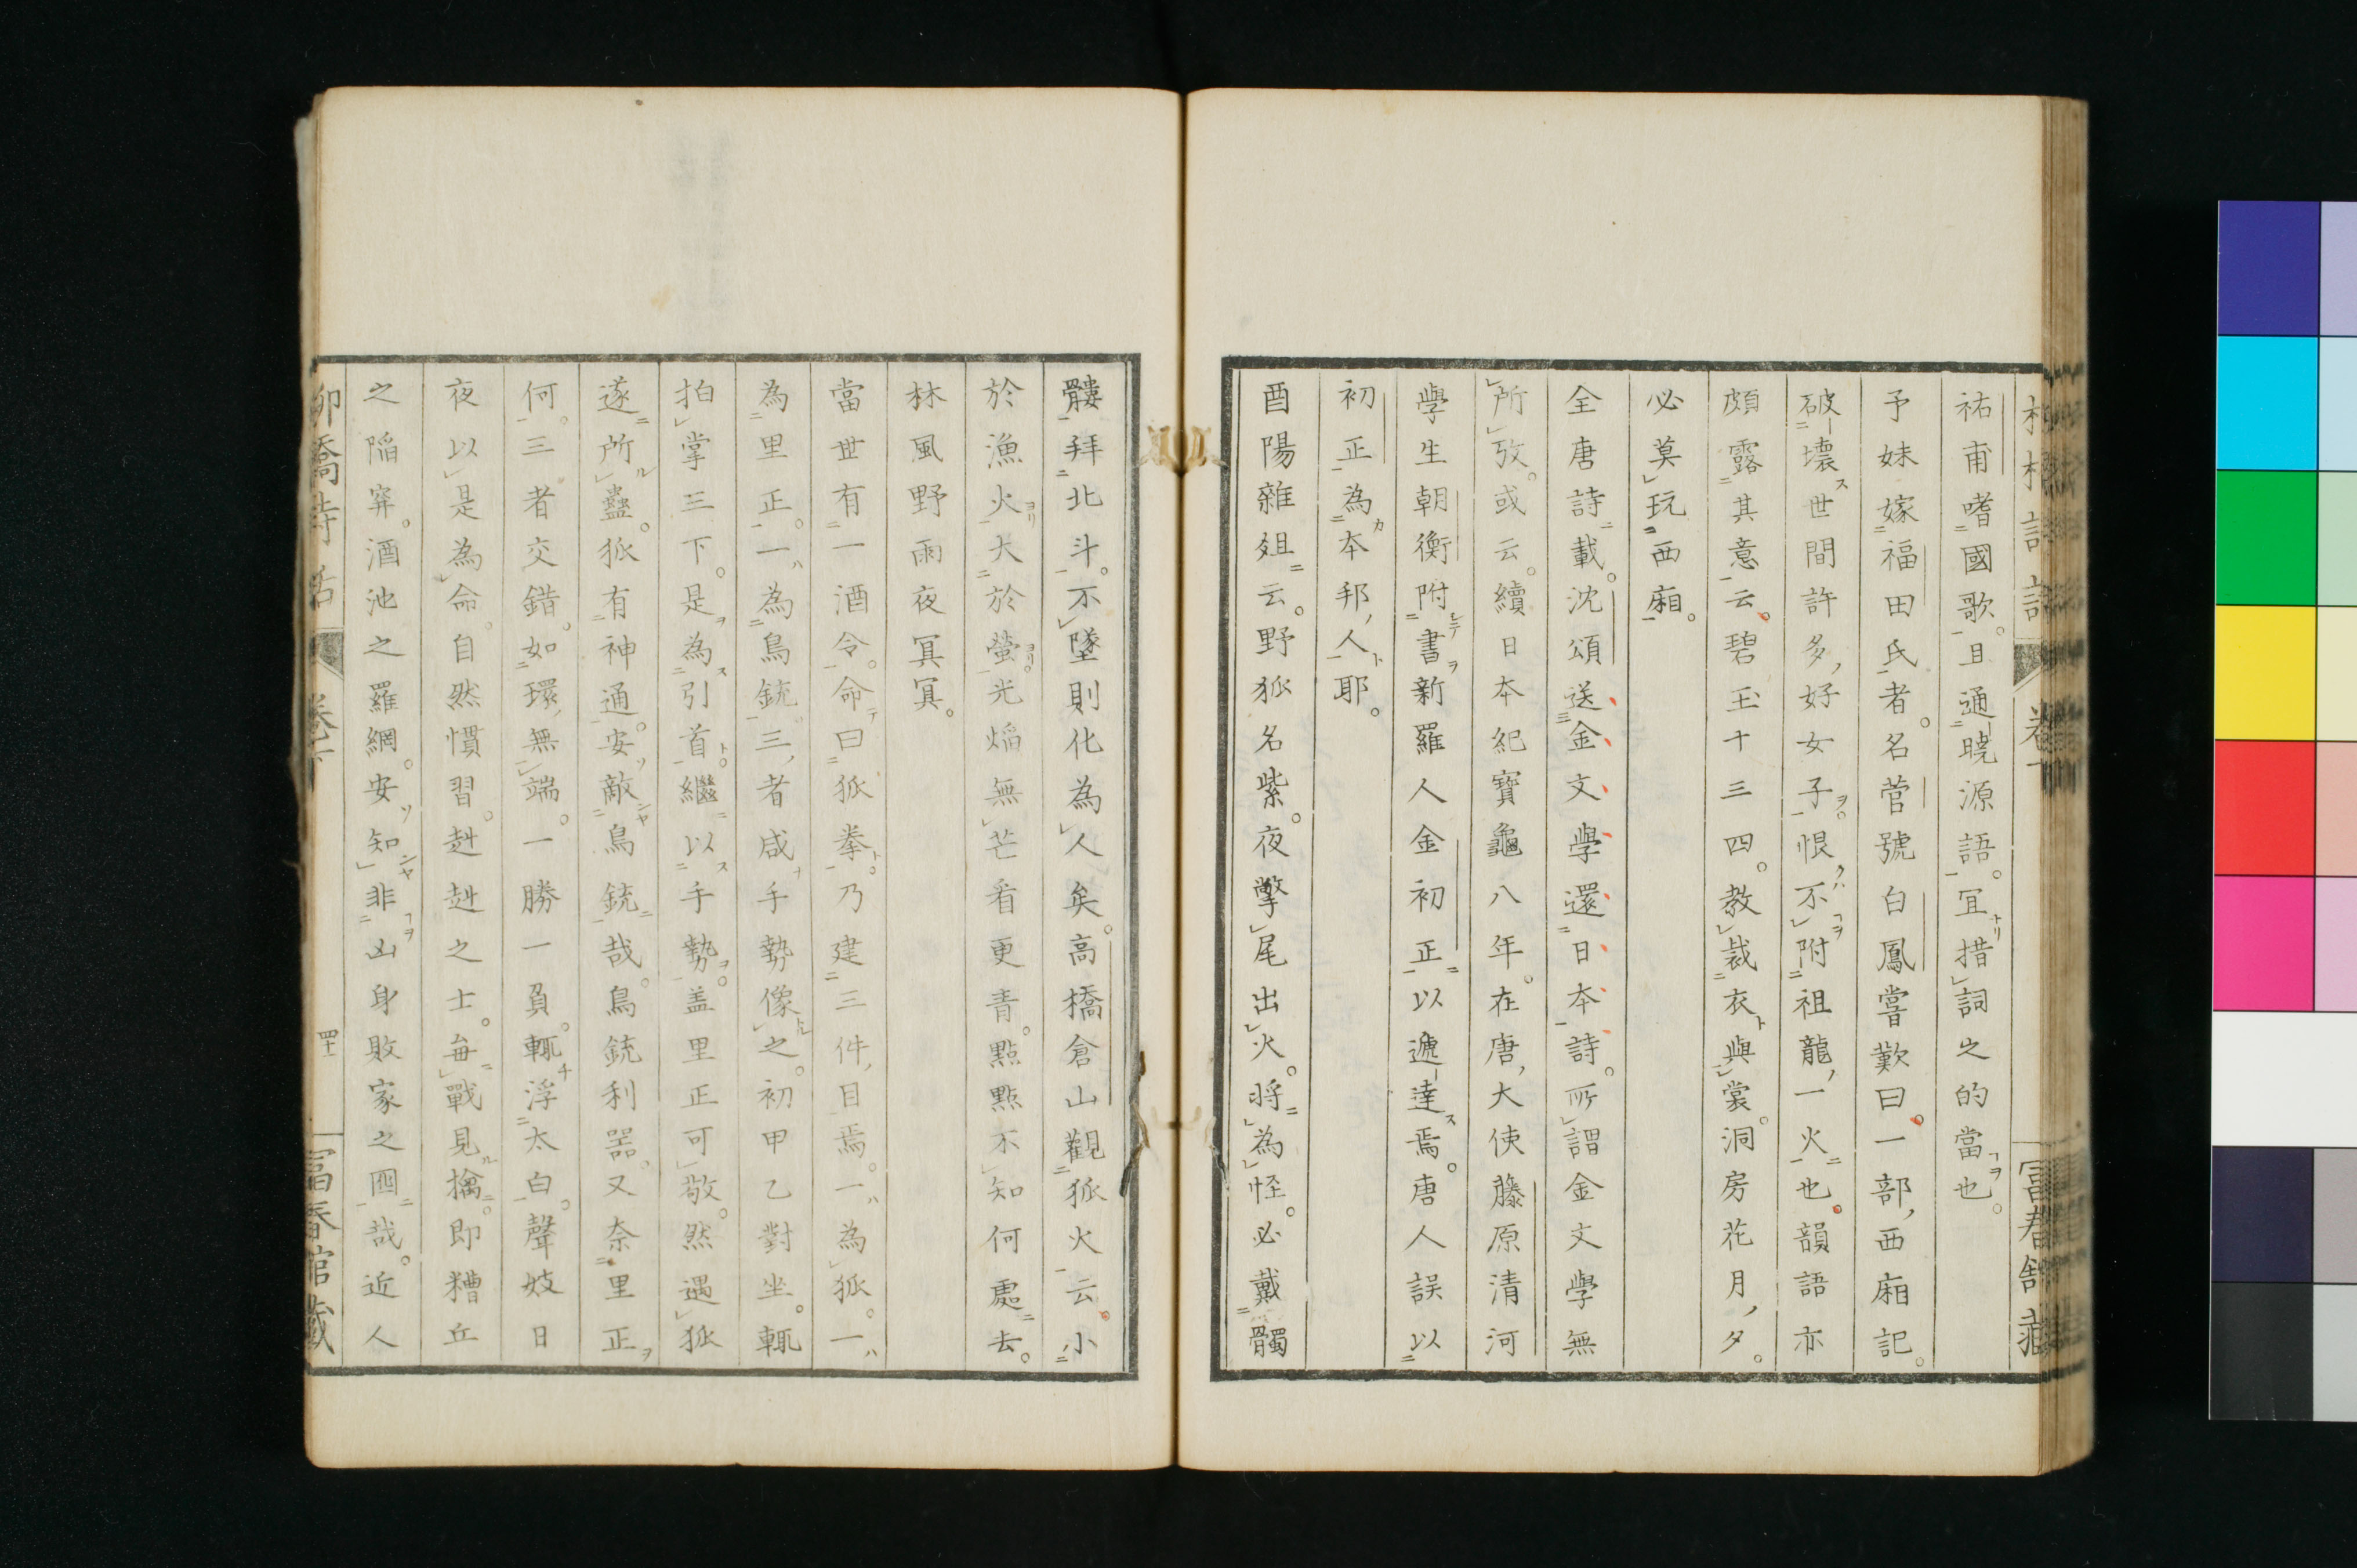 祐甫嗜國歌。且通曉源語。宜措詞之的當也。
予妹嫁福田氏者。名菅號白鳳嘗歎曰。一部西廂記。
破壞世間許多好女子。恨不附祖龍一火也。韻語亦
頗露其意云。碧玉十三四。教裁衣與裳。洞房花月夕。
必莫玩西廂。
全唐詩載。沈頌送金文學還日本詩。所謂金文學無
所攷。或云。續日本紀寶龜八年。在唐大使藤原清河
學生朝衡附書新羅人金初正以遞達焉。唐人誤以
初正為本邦人耶。
酉陽雜俎云。野狐名紫。夜擊尾出火。將為怪。必戴髑
髏拜北斗。不墜則化為人矣。高橋倉山觀狐火云。小
於漁火大於螢。光焰無芒看更青。點點不知何處去。
林風野雨夜冥冥。
當世有一酒令。命曰狐拳。乃建三件目焉。一為狐。一
為里正。一為鳥銃。三者咸手勢像之。初甲乙對坐。輒
拍掌三下。是為引首。繼以手勢。盖里正可敬。然遇狐
遂所蠱。狐有神通。安敵鳥銃哉。鳥銃利器。又奈里正
何。三者交錯。如環無端。一勝一負。輒浮太白。聲妓日
夜以是為命。自然慣習。赳赳之士。每戰見擒。即糟丘
之陷穽。酒池之羅網。安知非凶身敗家之囮哉。近人
柳橋詩話 卷下 四十二 富春館藏